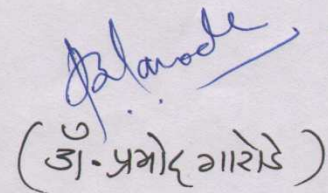 (डॉ. प्रमोद गारोडे)